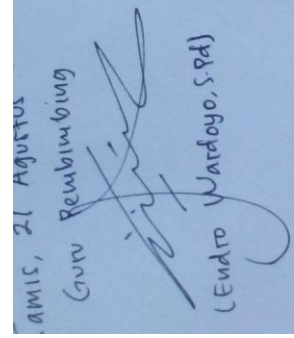 amis, 21 Agustus
Guru Pembimbing
(Endro Wardoyo, S.Pd)